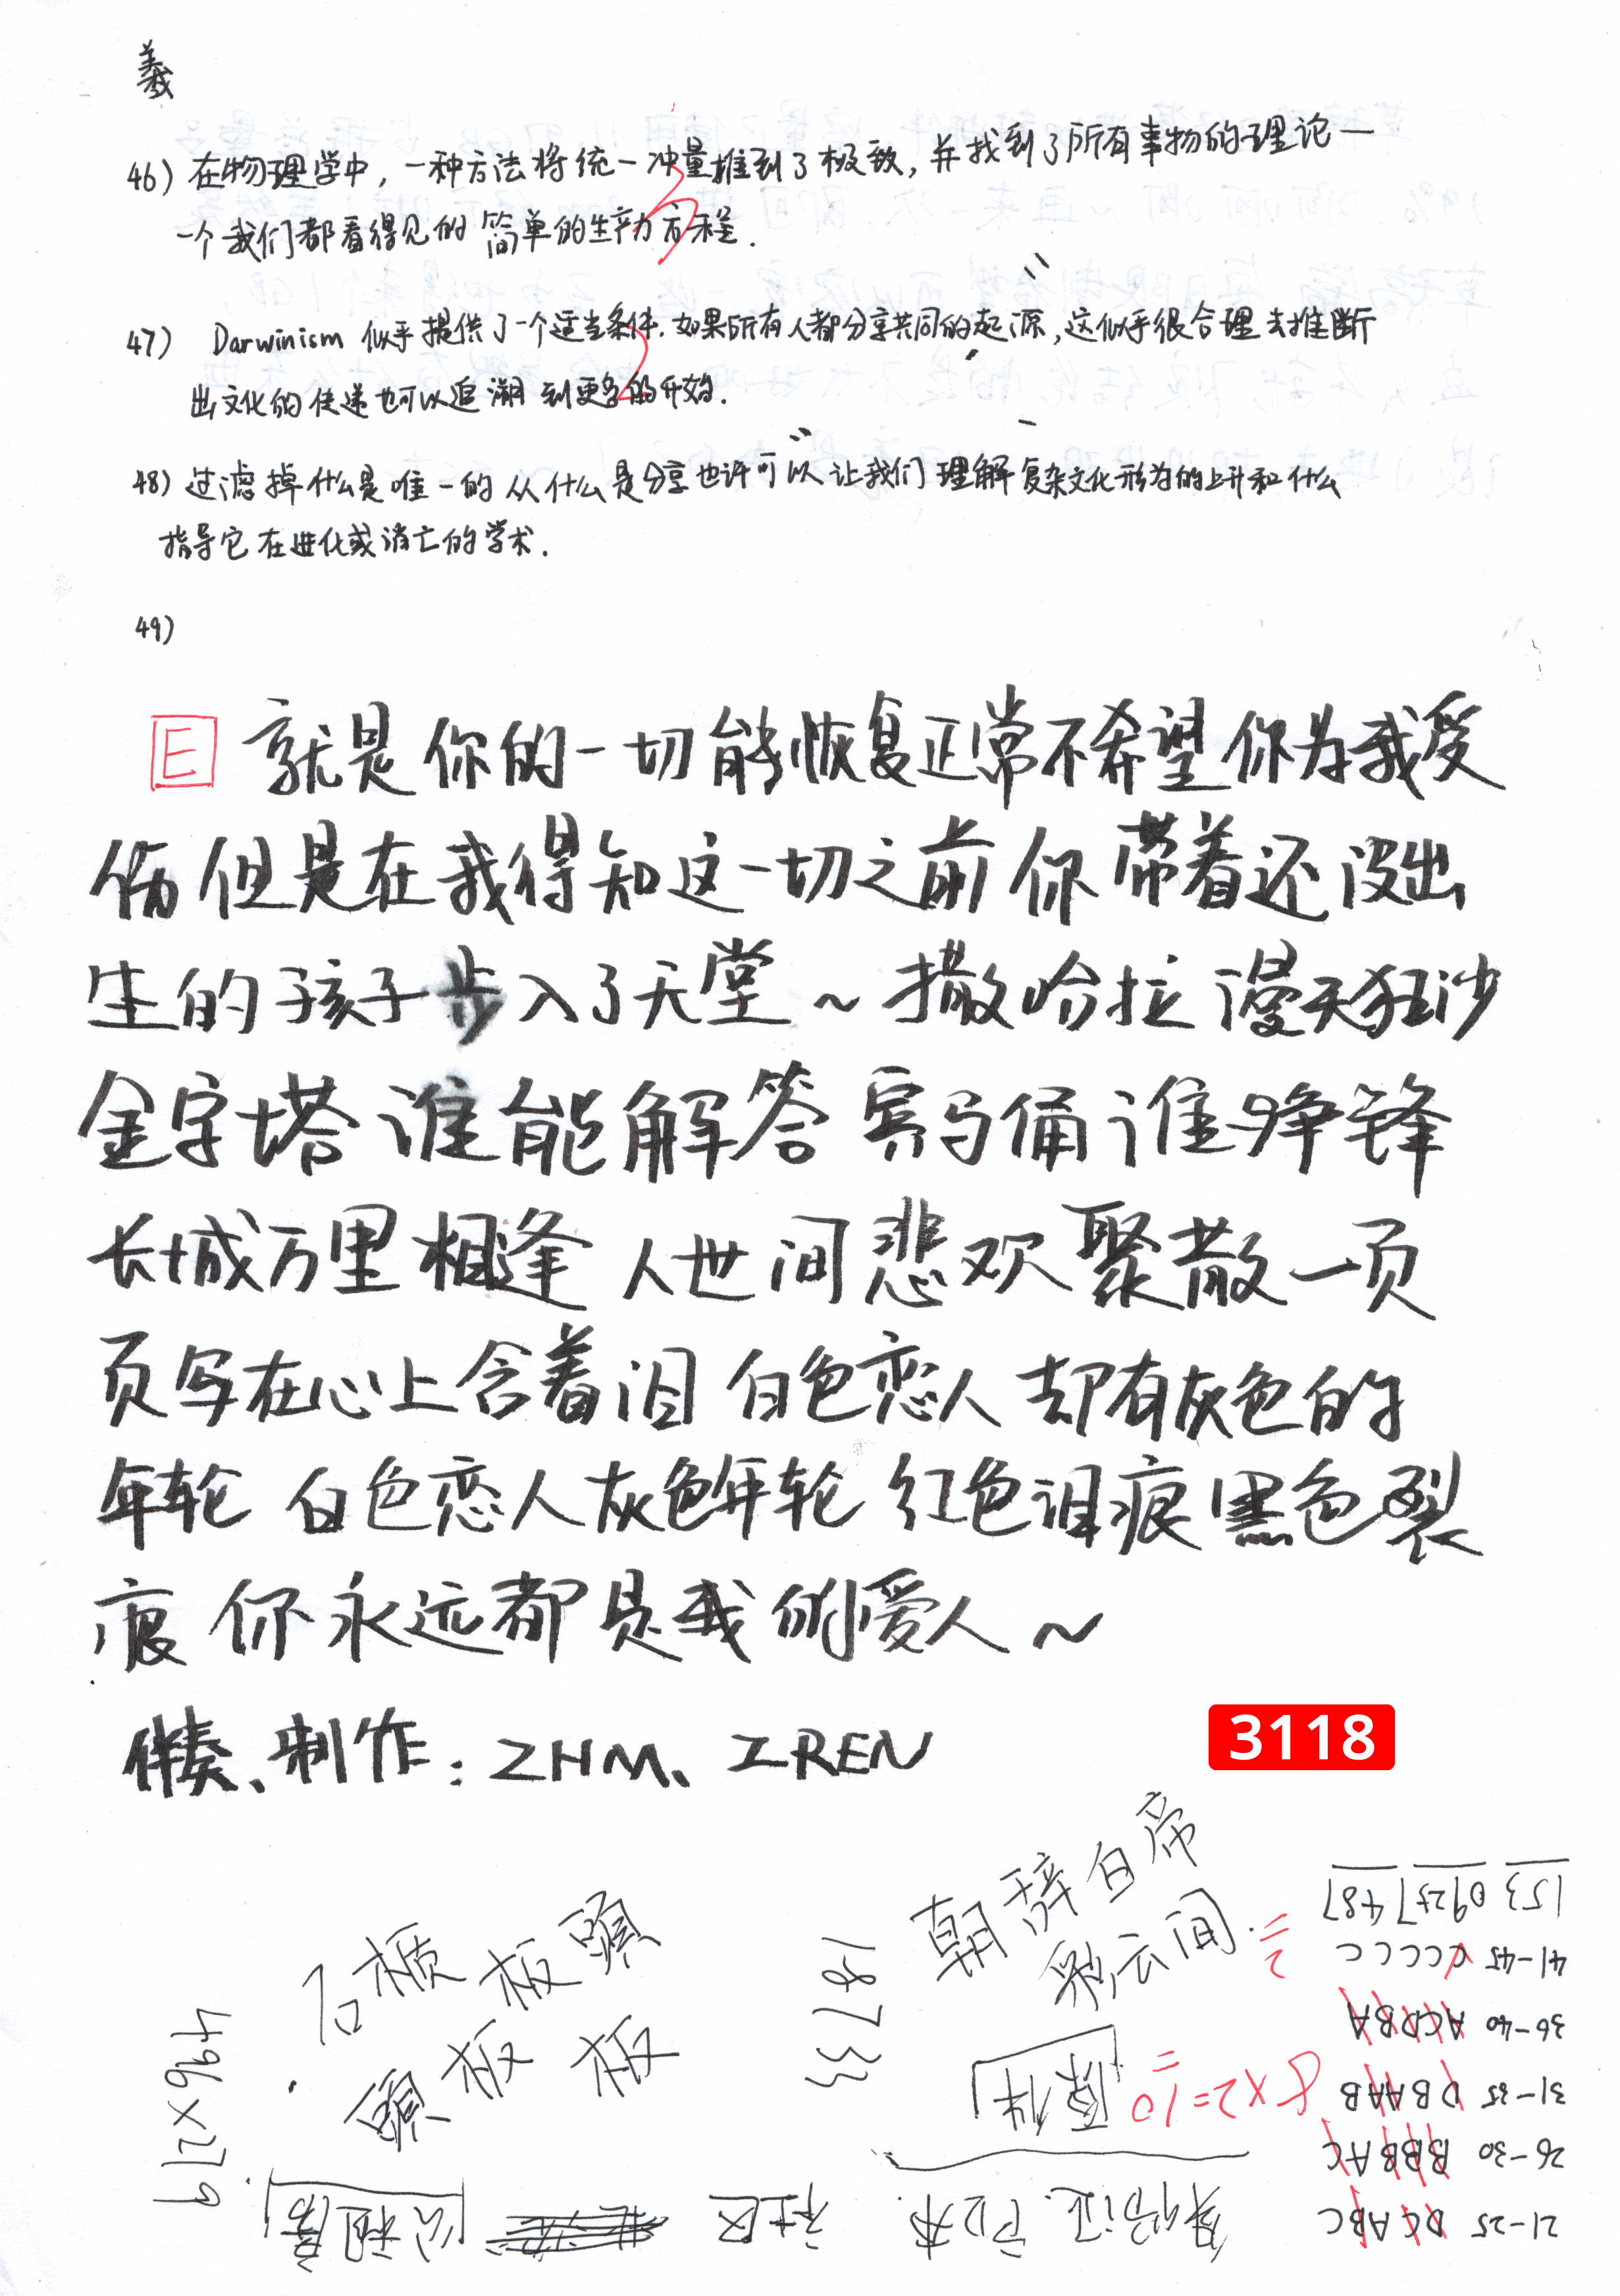 羲
46) 在物理学中，一种方法将统一冲量推到了极致，并找到了所有事物的理论—
一个我们都看得见的简单的生产力方程.
47) Darwinism 似乎提供了一个适当条件. 如果所有人都分享共同的起源，这似乎很合理去推断
出文化的传递也可以追溯到更多的开始.
48) 过滤掉什么是唯一的从什么是分享也许可以让我们理解复杂文化形为的上升和什么
指导它在进化或消亡的学术.
49)
E 就是你的一切能恢复正常不希望你为我受
伤但是在我得知这一切之前你带着还没出
生的孩子步入了天堂～撒哈拉漫天狂沙
金字塔谁能解答 兵马俑谁争锋
长城万里相逢 人世间悲欢聚散一页
页写在心上含着泪 白色恋人却有灰色的
年轮 白色恋人灰色年轮 红色泪痕黑色裂
痕 你永远都是我的爱人～
伴奏、制作：ZHM、IREN
3118
朝辞白帝
彩云间.
=2
石楯板頭
頭板板
18733
496×279
153 09257 487
41-45 CCCCC
36-40 ACDBA
31-35 DBAAB
26-30 BBBAC
21-25 DCABC
8×2=10
身份证、户口本
社区